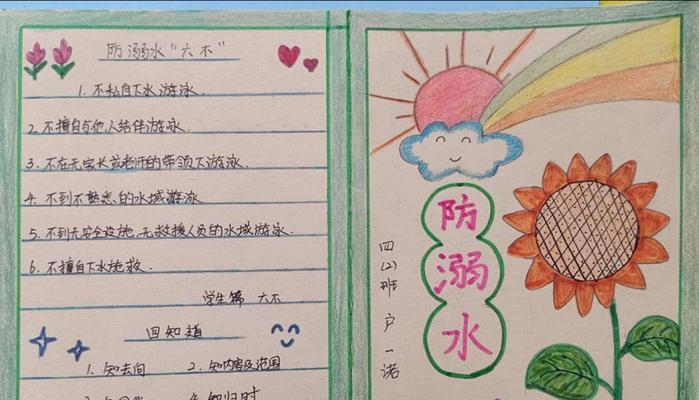 防溺水“六不”
1. 不私自下水游泳.
2. 不擅自与他人结伴游泳.
3. 不在无家长或老师的带领下游泳.
4. 不到不熟悉的水域游泳
5. 不到无安全设施、无救援人员的水域游泳.
6. 不擅自下水施救.
学生篇 六不
四知道
1. 知去向 2. 知内容及范围
4. 知归时
防溺水
四(2)班 户一诺